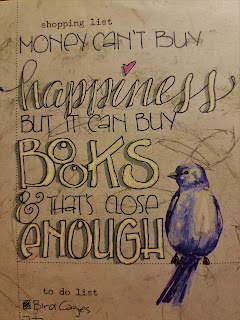 shopping list
MONEY CAN'T BUY
happiness
BUT IT CAN BUY
BOOKS
& THAT'S CLOSE
ENOUGH
to do list
Bird Cages